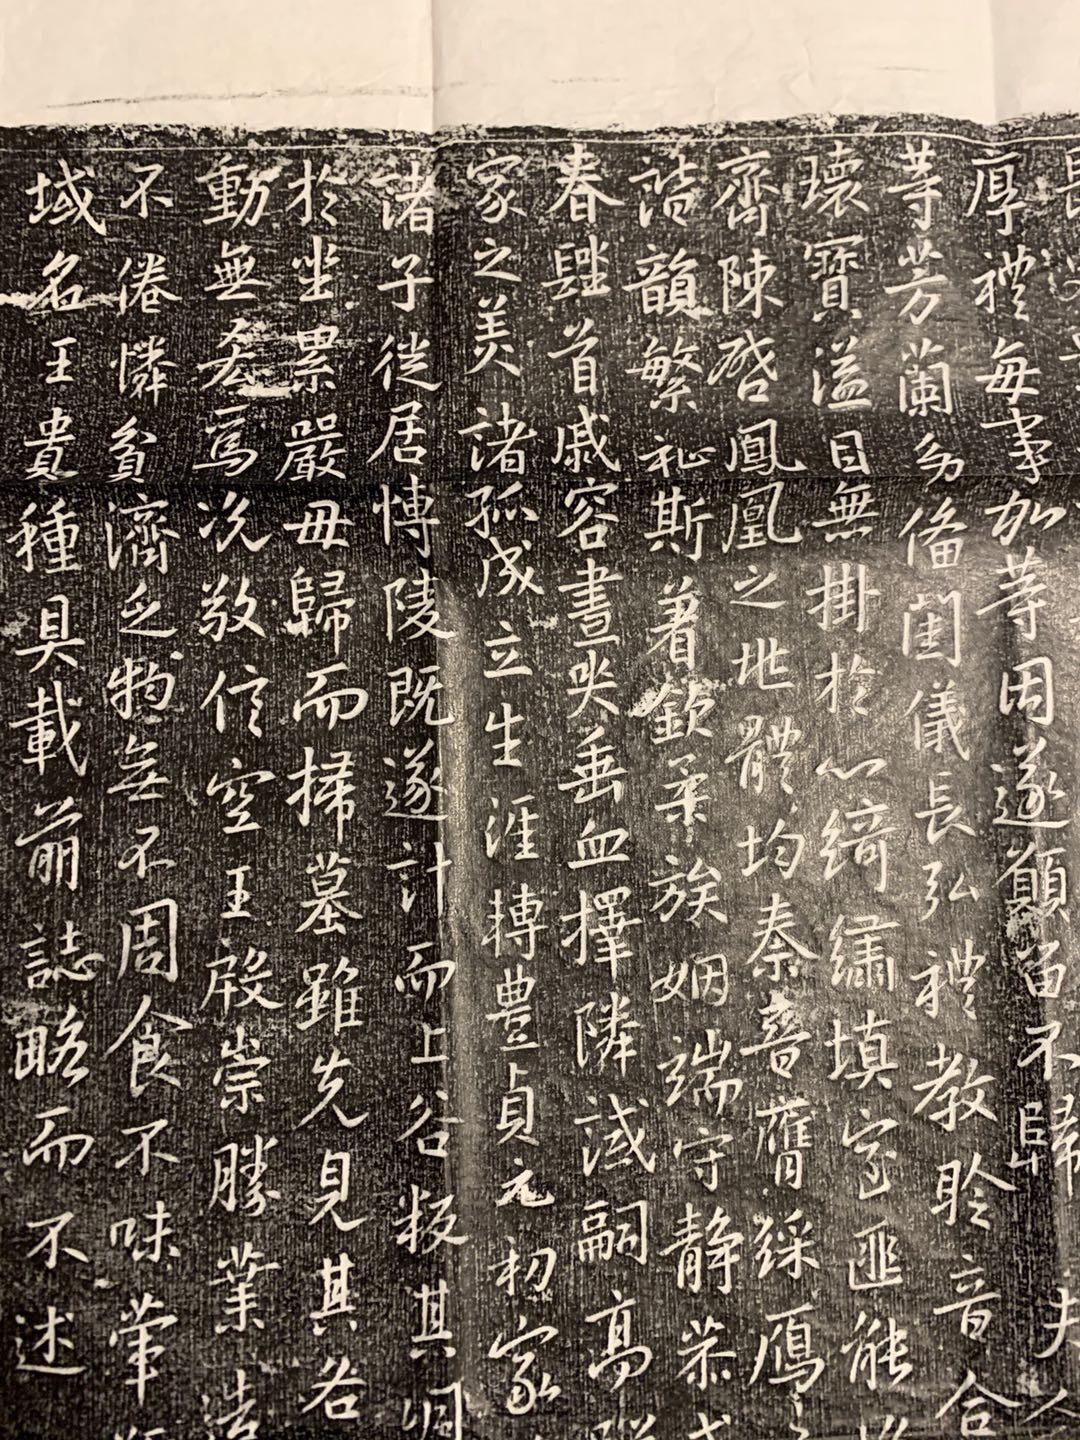 夫
厚禮每事加等因遂顧留不歸
等芳蘭幼俻閨儀長弘禮教聆音合
瓌寶溢目無掛於心綺繡填室匪能
齊陳啓鳳凰之兆體均秦晉膺綵鴈
諧韻繁祉斯著欽柔族姻端守静恭
春首戚容晝哭垂血擇隣誡嗣高
家之美諸孤成立生涯摶豊貞元初家
諸子從居博陵既遂計而上谷叛其
於坐累嚴毋歸而掃墓雖先見其咎
動無焉况敬信空王殿崇勝業
不倦憐貧濟乏物無不周食不味葷
域名王貴種具載前誌略而不述